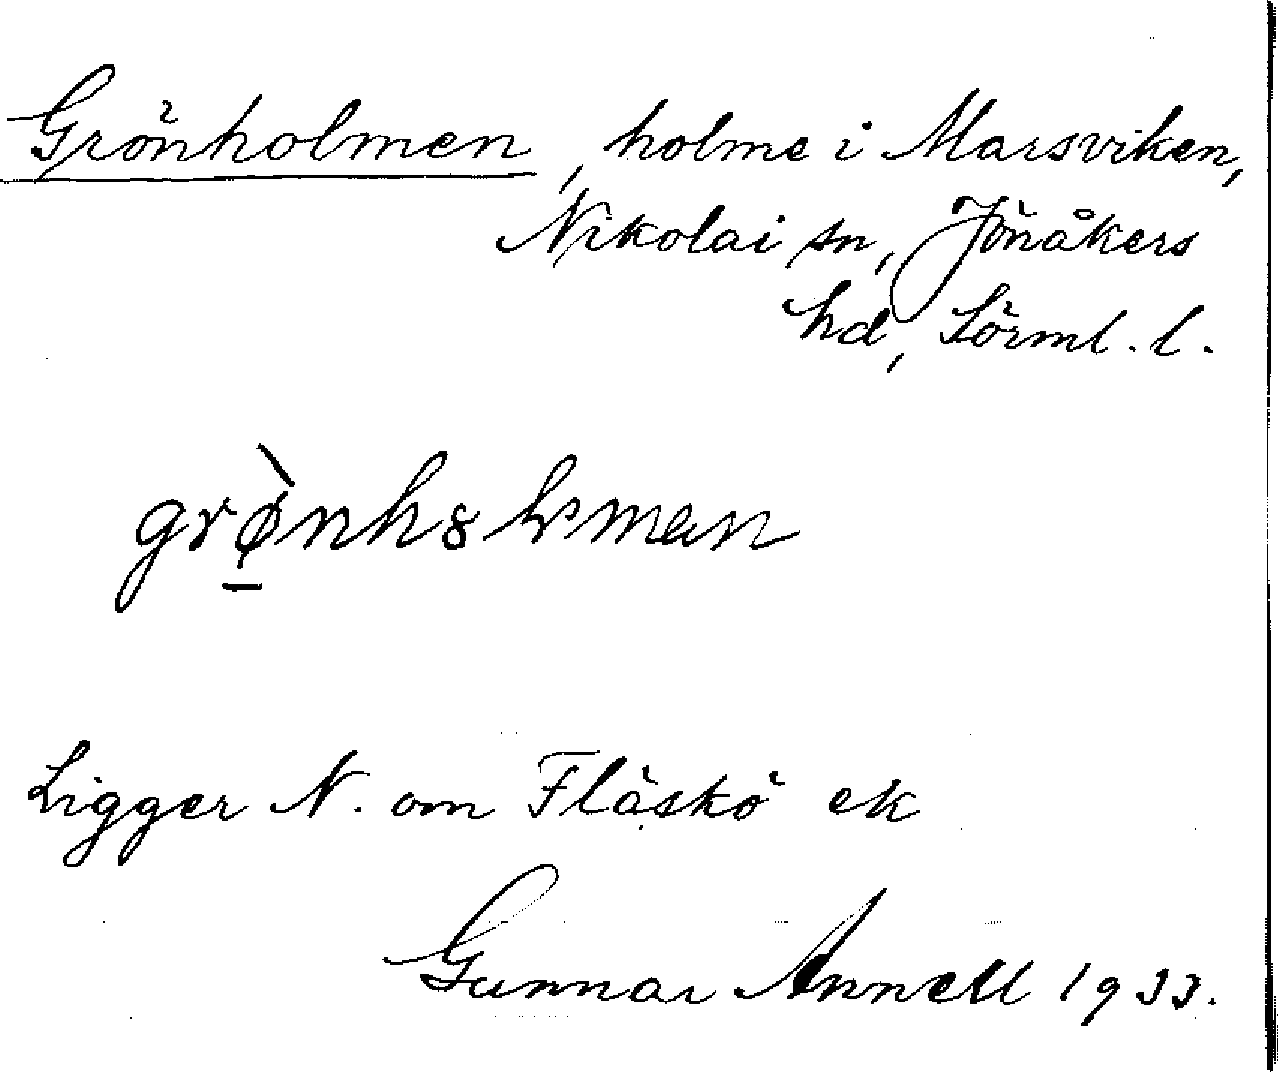 Grönholmen, holme i Marsviken,
Nikolai sn, Jönåkers
hd, Sörml. l.
Ligger N. om Fläskö ek
Gunnar Annell 1933.